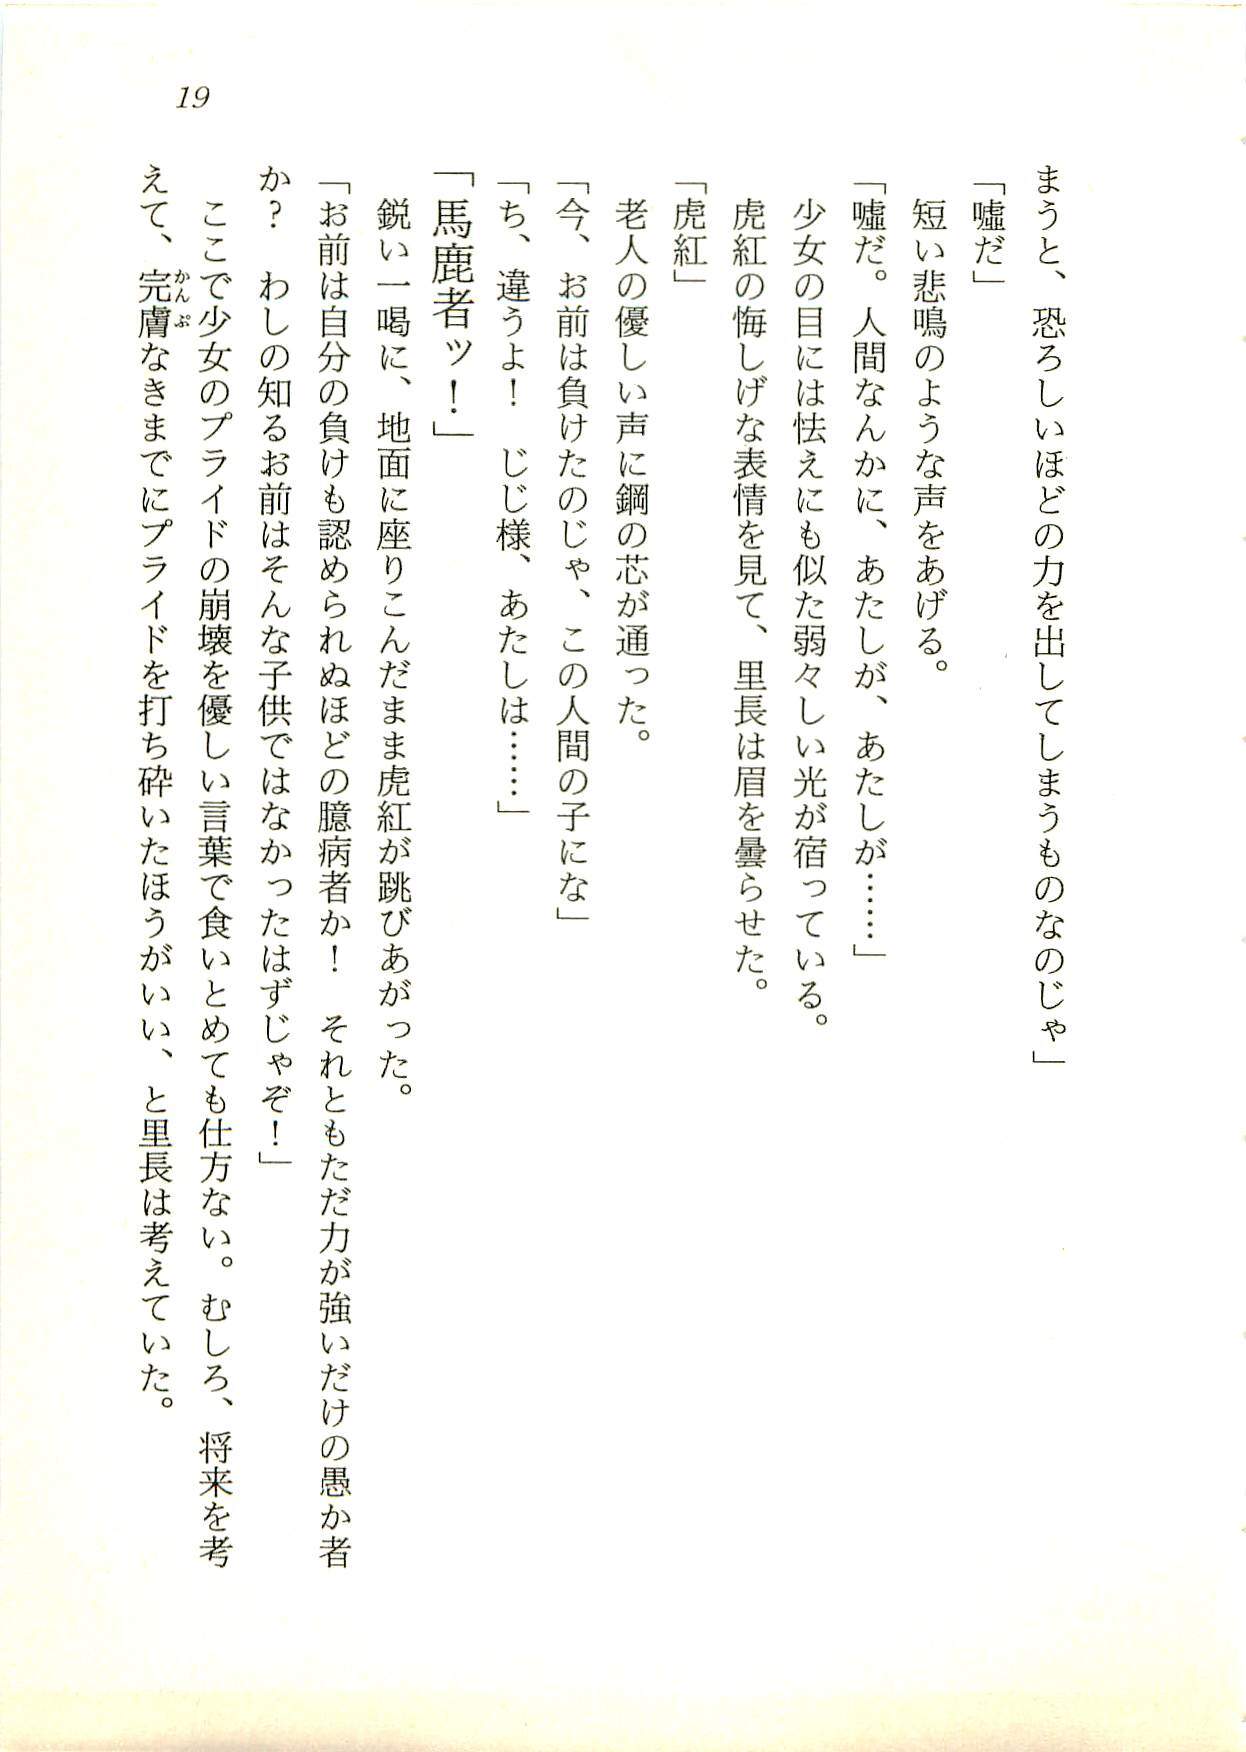 19
まうと、恐ろしいほどの力を出してしまうものなのじゃ」
「嘘だ」
短い悲鳴のような声をあげる。
「嘘だ。人間なんかに、あたしが、あたしが……」
少女の目には怯えにも似た弱々しい光が宿っている。
虎紅の悔しげな表情を見て、里長は眉を曇らせた。
「虎紅」
老人の優しい声に鋼の芯が通った。
「今、お前は負けたのじゃ、この人間の子にな」
「ち、違うよ！　じじ様、あたしは……」
「馬鹿者ッ！」
鋭い一喝に、地面に座りこんだまま虎紅が跳びあがった。
「お前は自分の負けも認められぬほどの臆病者か！　それともただ力が強いだけの愚か者
か？　わしの知るお前はそんな子供ではなかったはずじゃぞ！」
ここで少女のプライドの崩壊を優しい言葉で食いとめても仕方ない。むしろ、将来を考
えて、完膚かんぷなきまでにプライドを打ち砕いたほうがいい、と里長は考えていた。